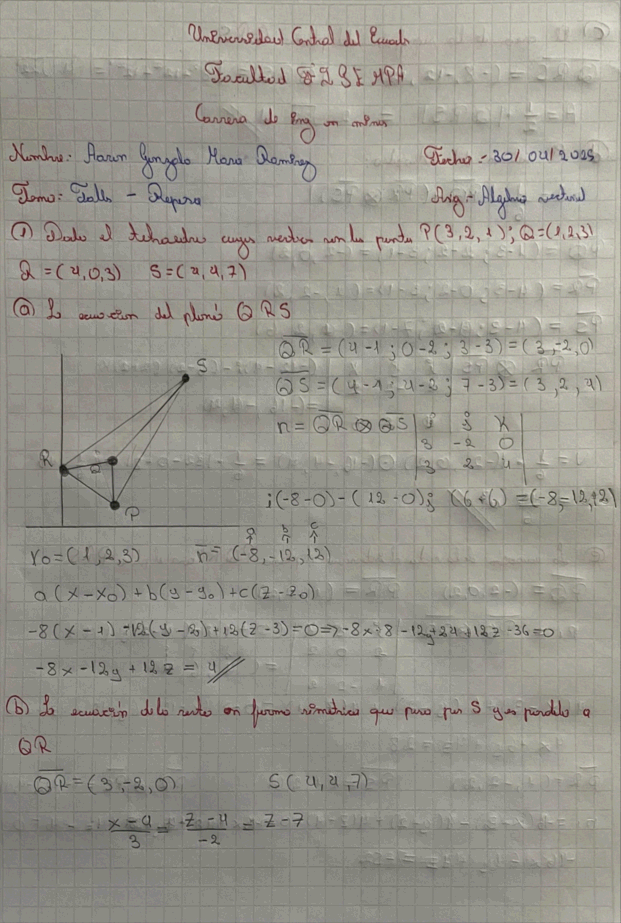 Universidad Central del Ecuador
Facultad FIGEMPA
Carrera de Ing en minas
Nombre: Aaron Gonzalo Haro Ramirez Fecha:- 30/04/2025
Tema: Taller - Repaso Asig:- Algebra vectorial
① Dado el tetraedro cuyos vertices son los puntos P(3,2,1); Q=(1,2,3)
R=(4,0,3) S=(4,4,7)
ⓐ La ecuacion del plano QRS
QR=(4-1;0-2;3-3)=(3,-2,0)
QS=(4-1;4-2;7-3)=(3,2,4)
n=QR⊗QS | i j K
3 -2 0
3 2 4 |
i(-8-0)-(12-0)j (6+6)=(-8,-12,12)
S
R
Q
P
a b c
↑ ↑ ↑
r0=(1,2,3) n=(-8,-12,12)
a(x-x0)+b(y-y0)+c(z-z0)
-8(x-1)-12(y-2)+12(z-3)=0⇒-8x+8-12y+24+12z-36=0
-8x-12y+12z=4//
ⓑ La ecuación de la recta en forma simétrica que pasa por S y es paralela a
QR
QR=(3,-2,0) S(4,4,7)
x-4/3=z-4/-2=z-7